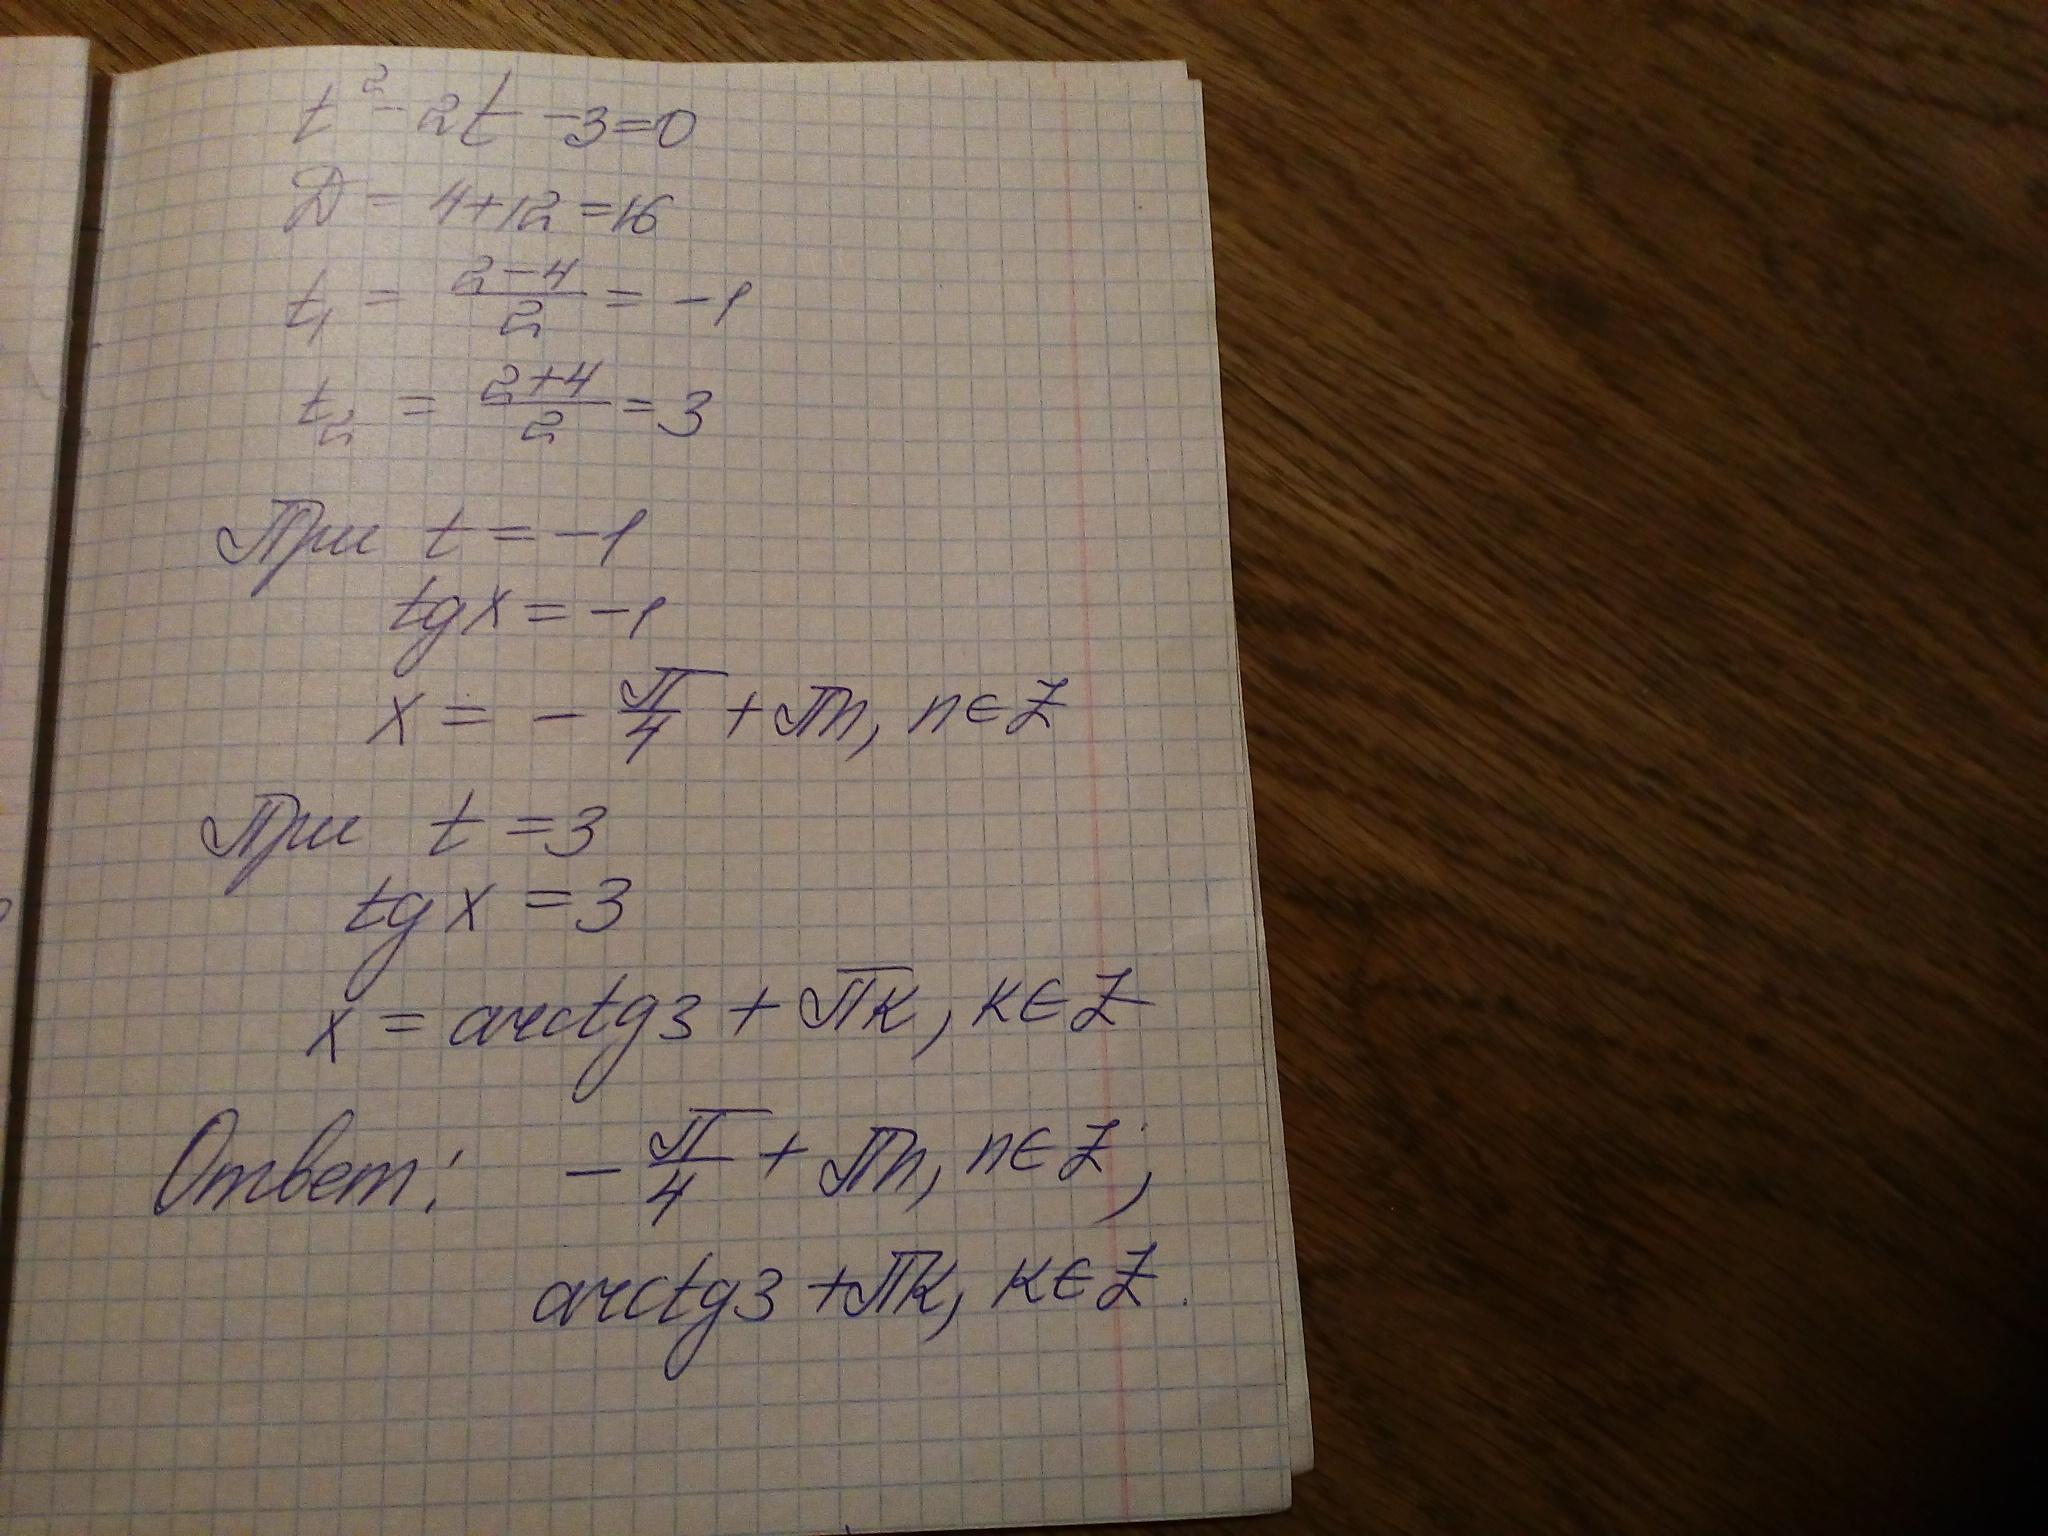 t² - 2t - 3 = 0
D = 4 + 12 = 16
t₁ = (2 - 4)/2 = -1
t₂ = (2 + 4)/2 = 3
При t = -1
tg x = -1
x = - π/4 + πn, n ∈ Z
При t = 3
tg x = 3
x = arctg 3 + πк, к ∈ Z
Ответ: - π/4 + πn, n ∈ Z;
arctg 3 + πк, к ∈ Z.